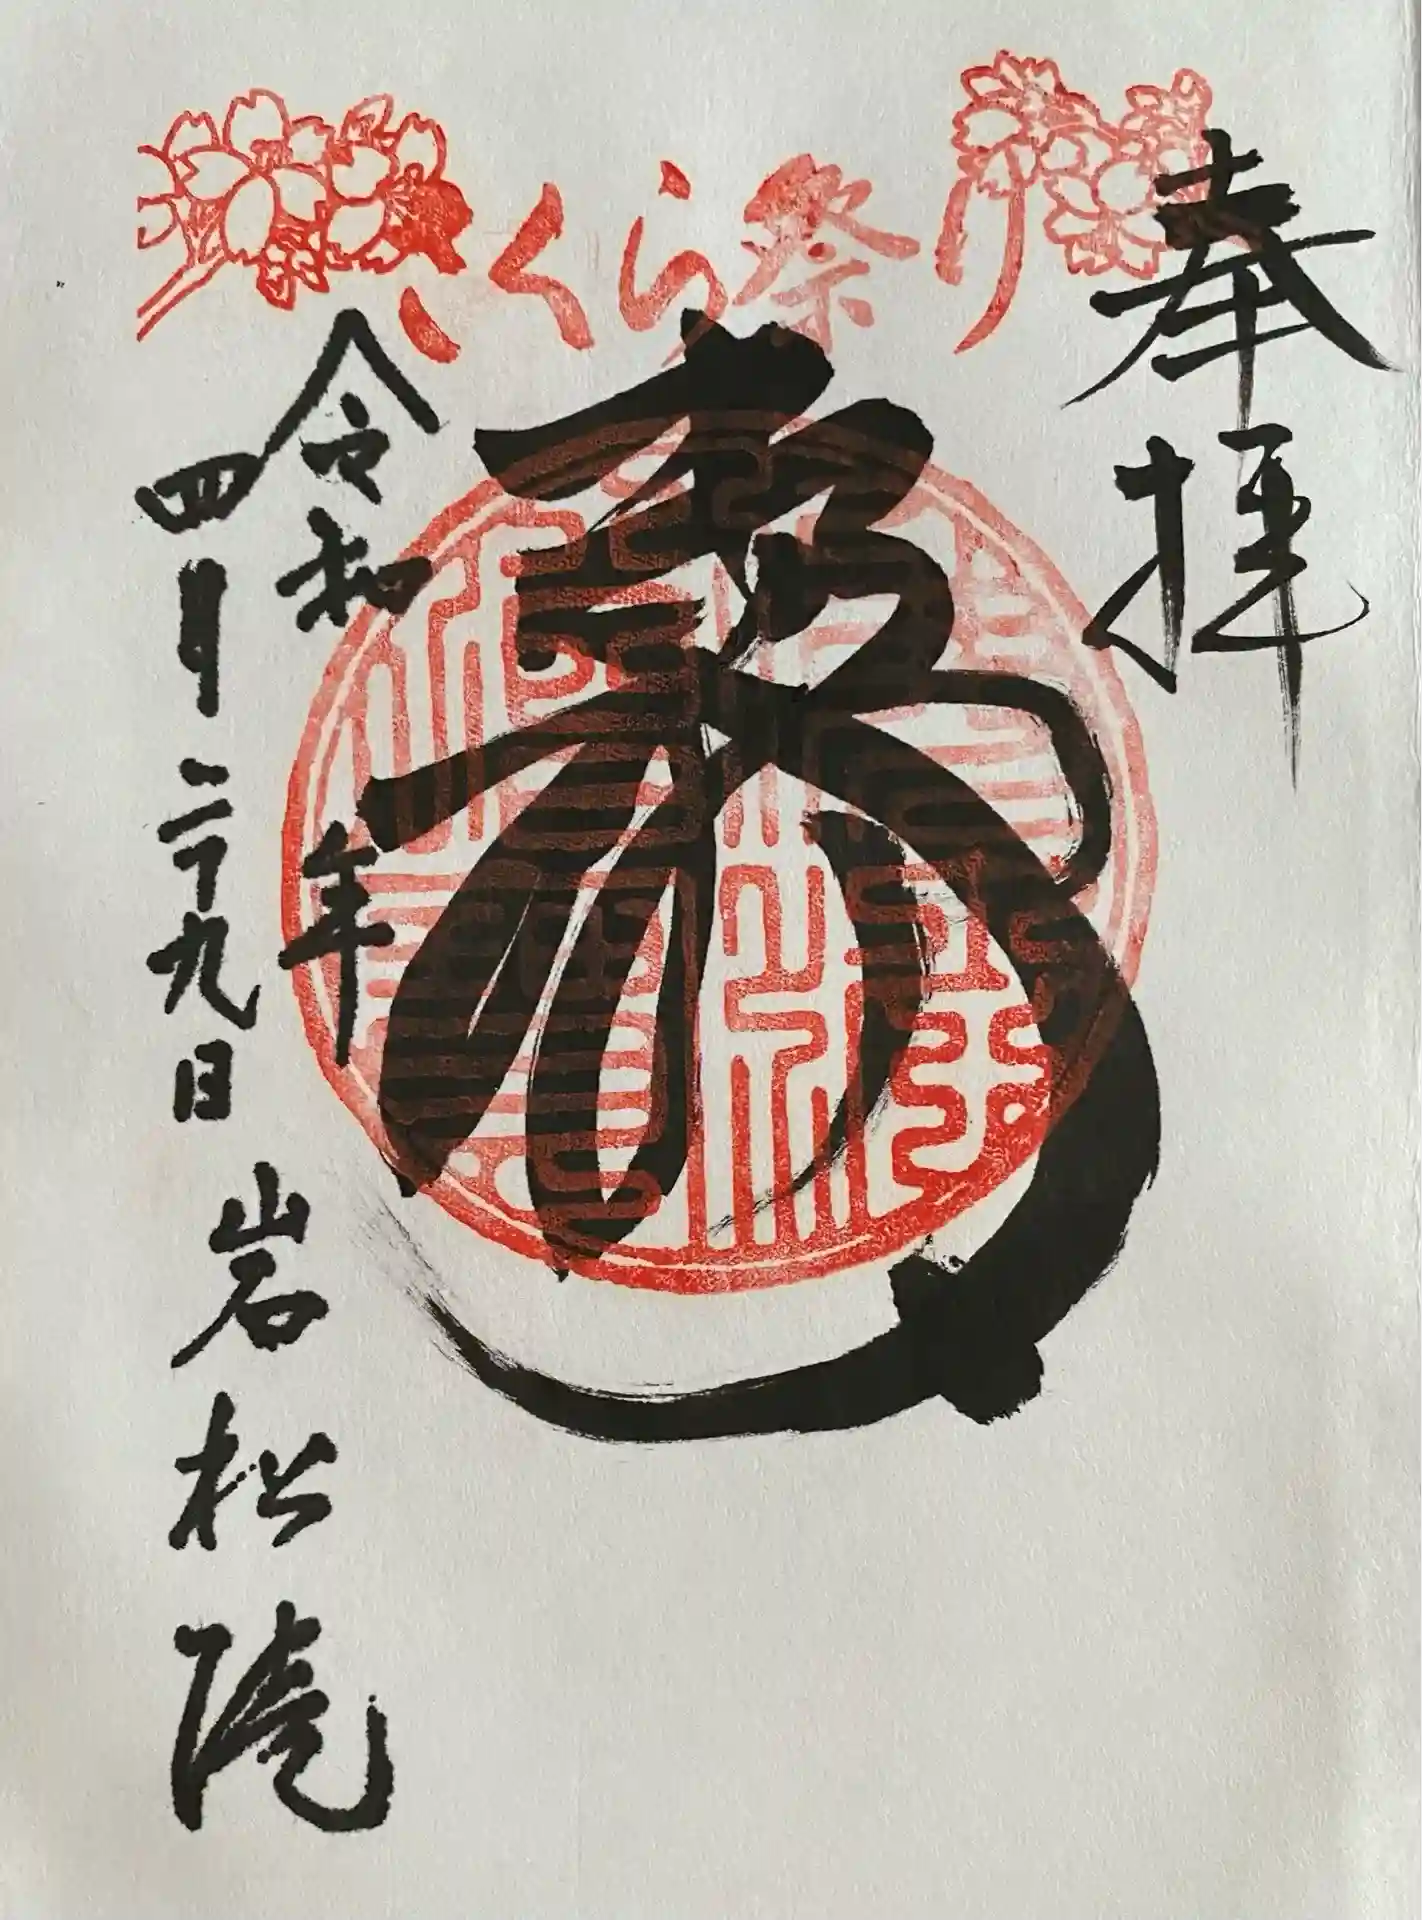 さくら祭り
奉拝
令和 年
四月二十九日
岩松院